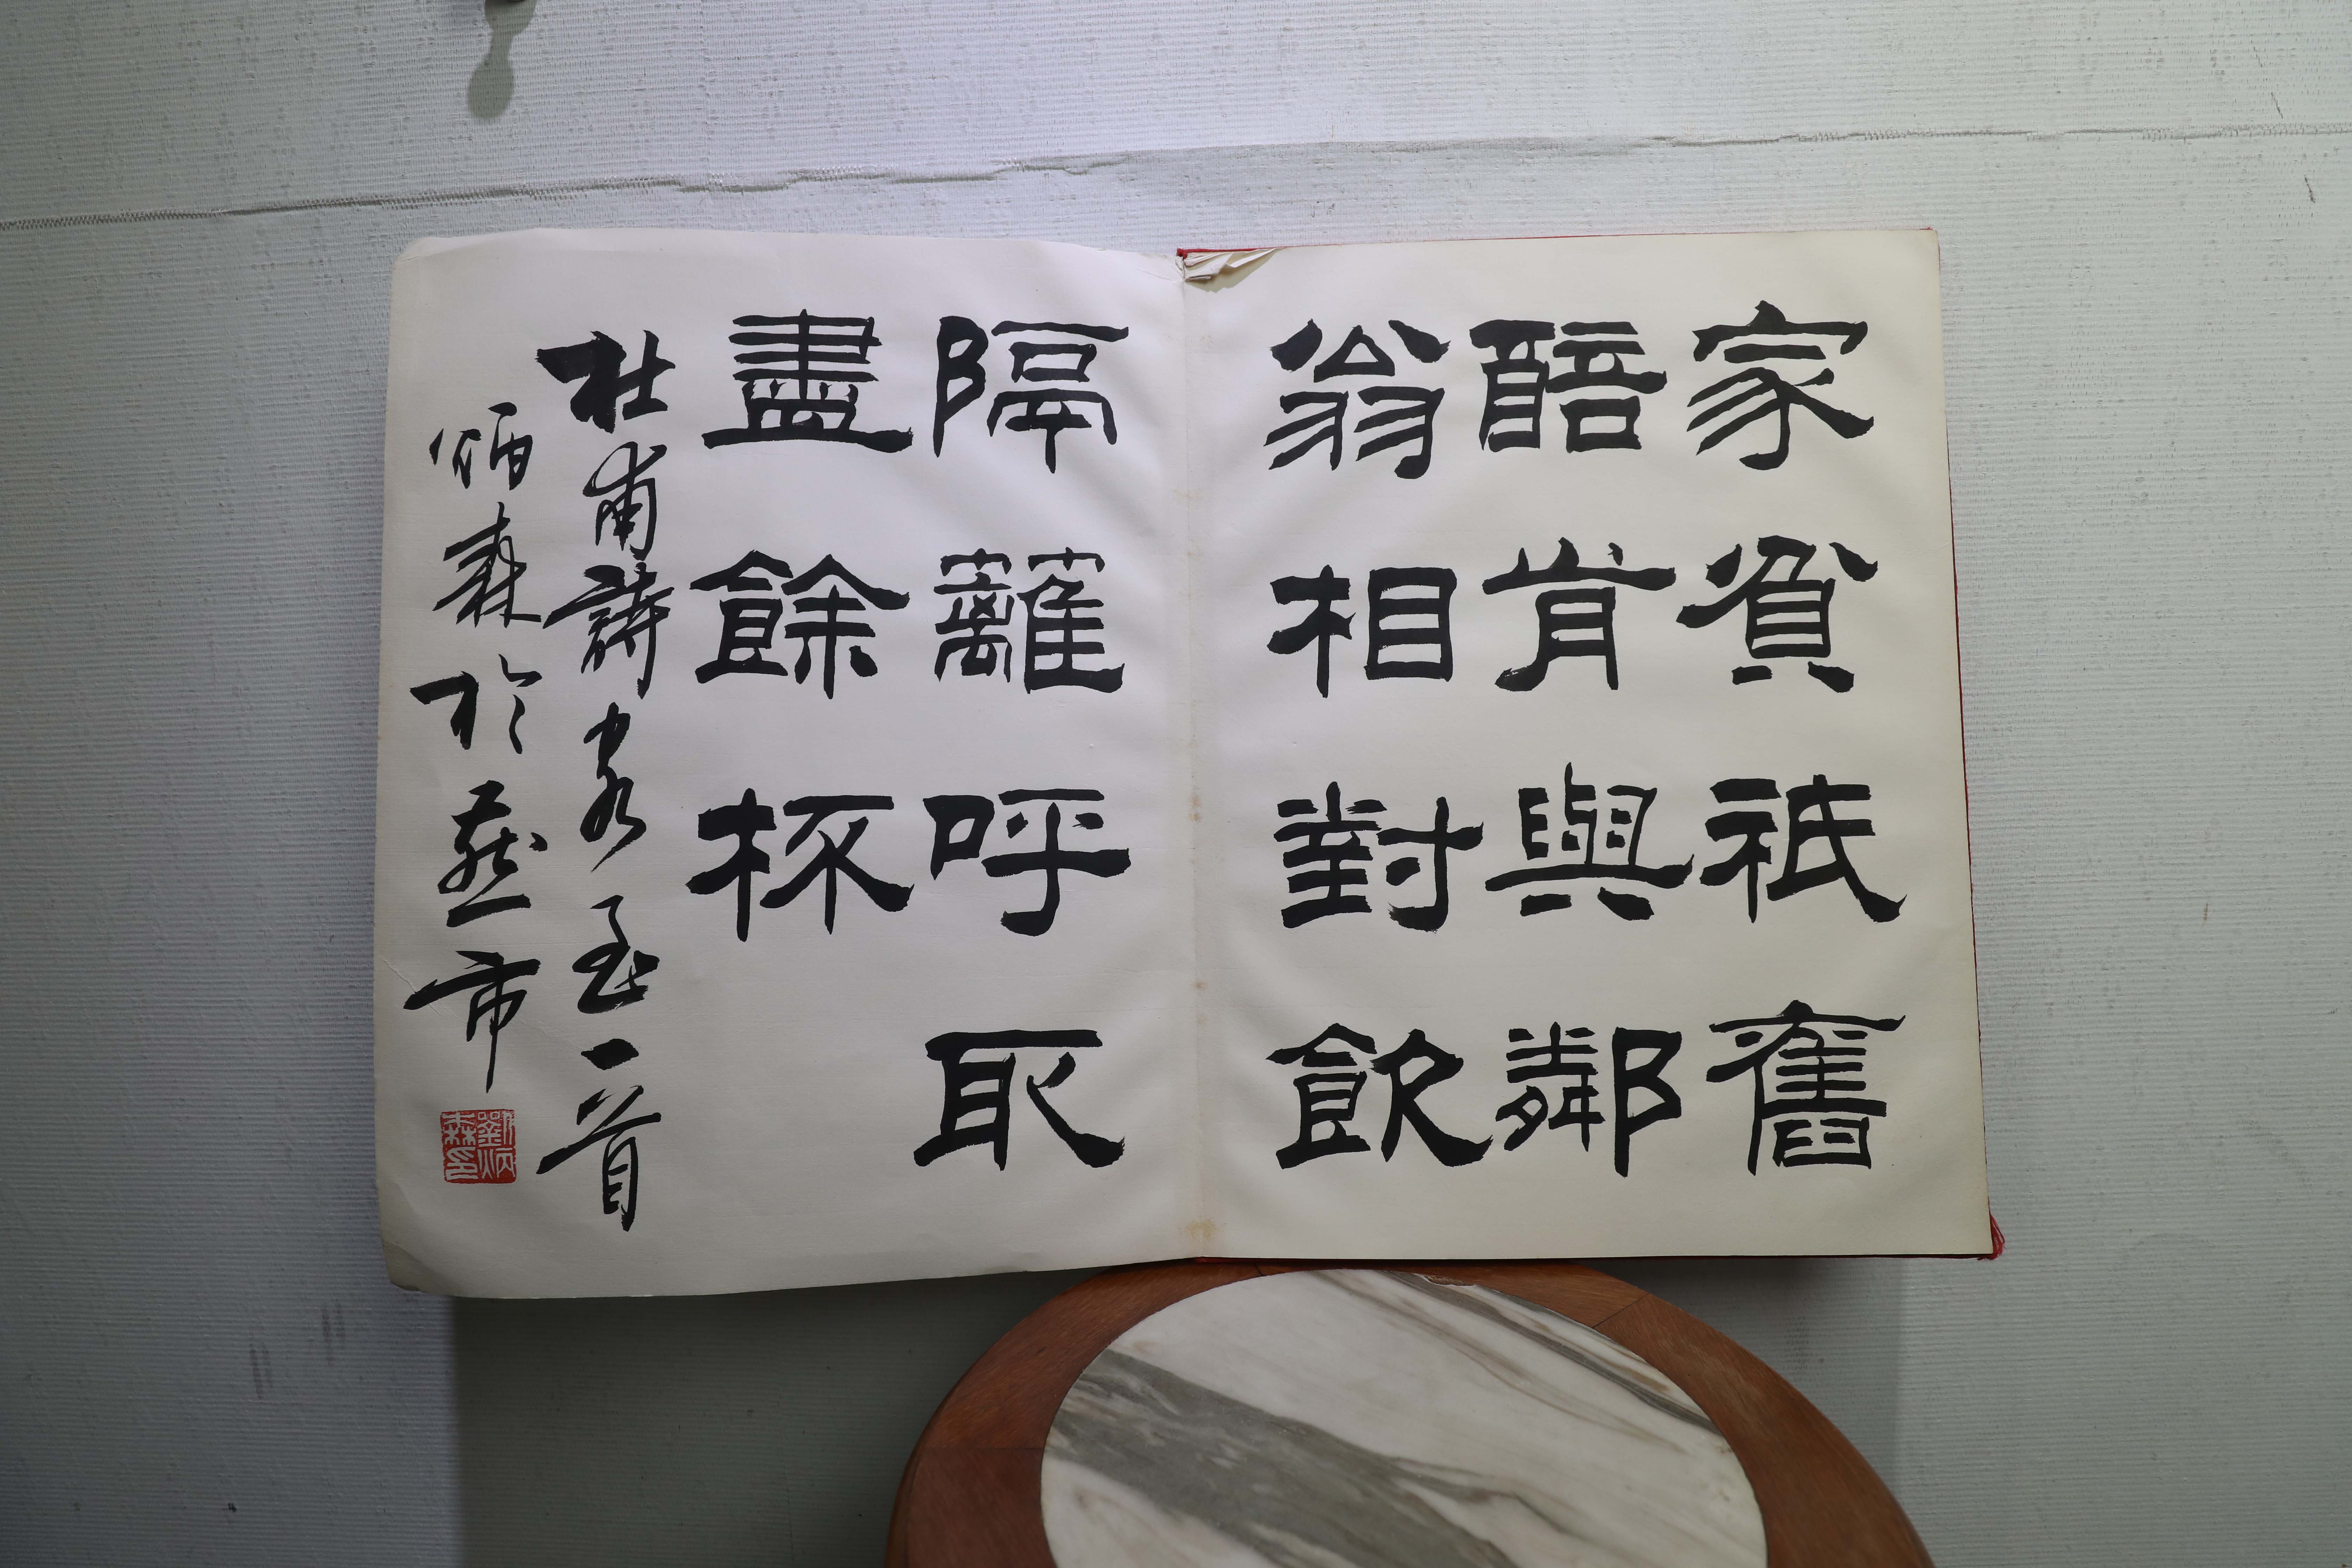 家貧祇舊
醅肯與鄰
翁相對飲
隔籬呼取
盡餘杯
杜甫詩客至一首
炳森於燕市
劉炳森印